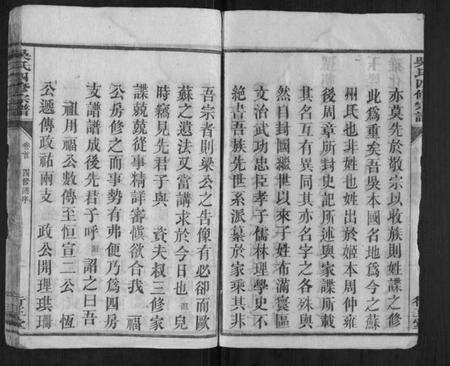 吳氏四修宗譜
亦莫先於敬宗以收族則姓譜之修
此為重矣吾吳本國名地為今之蘇
州氏也非姓也姓出於姬本周仲雍
後周章所封史記所述與家譜所載
其名互有異同其亦名字之各殊與
然自封國繼世以來子姓布滿寰區
文治武功忠臣孝子儒林理學史不
絕書吾族先世系派墓於家乘其非
吾宗者則梁公之告像有必卻而歐
蘇之遺法又當講求於今日也 兒
時竊見先君子與 資夫叔三修家
譜兢兢從事精詳審慎欲合我 福
公房修之而事勢有弗便乃為四房
支譜譜成後先君子呼 詔之曰吾
祖用福公數傳至恒宣二公 恆
公遞傳政祐兩支 政公開理琪珊
吳氏四修宗譜
卷首 四修譜序